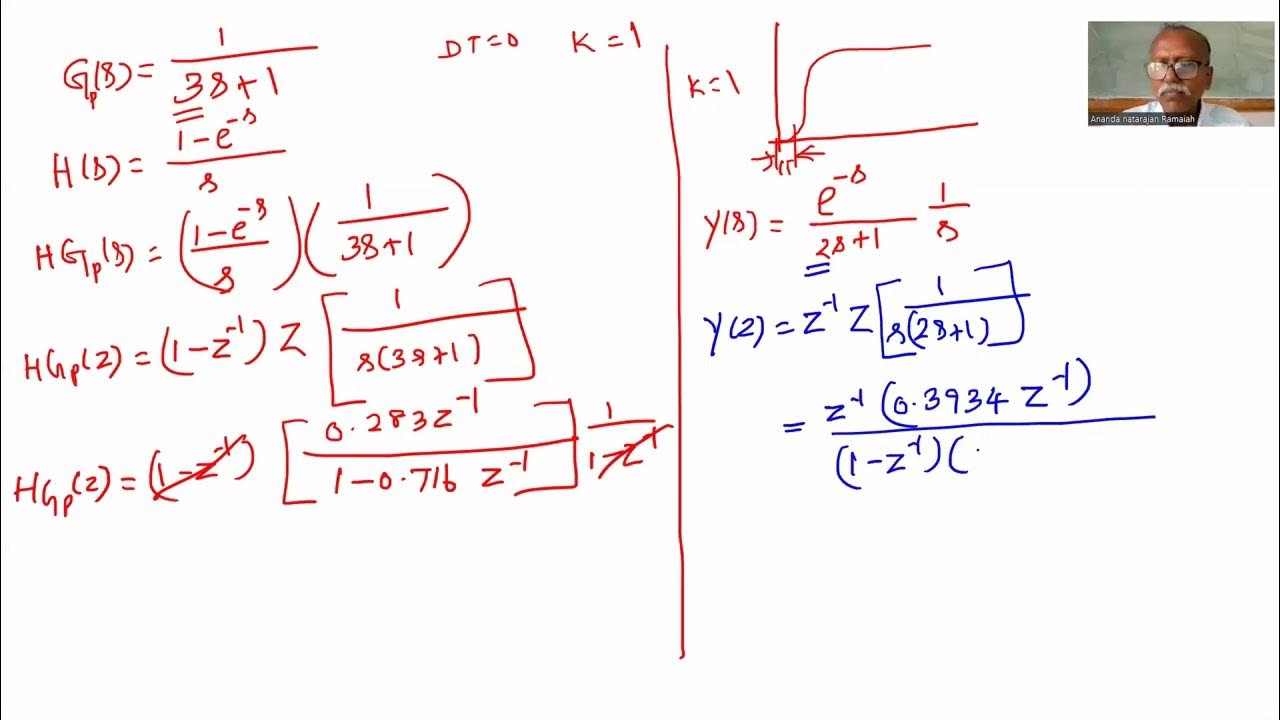 Gp(s) = 1/(3s+1)
DT=0 K=1
H(s) = (1-e^-s)/s
HGp(s) = ((1-e^-s)/s)(1/(3s+1))
HGp(z) = (1-z^-1) Z [1/(s(3s+1))]
HGp(z) = (1-z^-1) [0.283z^-1/(1-0.716 z^-1)] 1/(1-z^-1)
K=1
Y(s) = e^-s/(2s+1) 1/s
Y(z) = z^-1 Z [1/(s(2s+1))]
= z^-1 (0.3934 z^-1)/((1-z^-1)(
Ananda natarajan Ramaiah